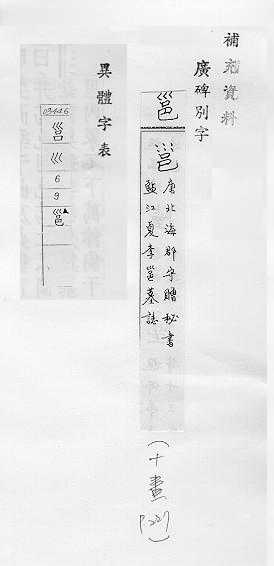 補充資料
廣碑別字
邕
邕
唐北海郡守贈秘書
監江夏李邕墓誌
(十畫
P.227)
異體字表
03446
巛
6
9
邕